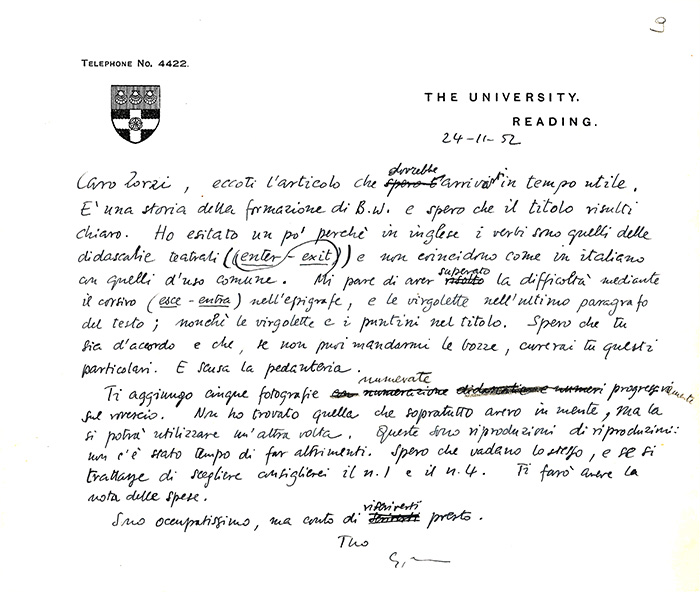 9
TELEPHONE No. 4422.
THE UNIVERSITY.
READING.
24-11-52
Caro Zorzi, eccoti l'articolo che dovrebbe arrivarti in tempo utile.
E' una storia della formazione di B.W. e spero che il titolo risulti
chiaro. Ho esitato un po' perchè in inglese i verbi sono quelli delle
didascalie teatrali ((enter - exit)) e non coincidono come in italiano
con quelli d'uso comune. Mi pare di aver superato la difficoltà mediante
il corsivo (esce - entra) nell'epigrafe, e le virgolette nell'ultimo paragrafo
del testo; nonchè le virgolette e i puntini nel titolo. Spero che tu
sia d'accordo e che, se non puoi mandarmi le bozze, curerai tu questi
particolari. E scusa la pedanteria.
Ti aggiungo cinque fotografie numerate progressivamente
sul rovescio. Non ho trovato quella che sopratutto avevo in mente, ma la
si potrà utilizzare un'altra volta. Queste sono riproduzioni di riproduzioni:
non c'è stato tempo di far altrimenti. Spero che vadano lo stesso, e se si
trattasse di scegliere consiglierei il n.1 e il n.4. Ti farò avere la
nota delle spese.
Sono occupatissimo, ma conto di riscriverti presto.
Tuo